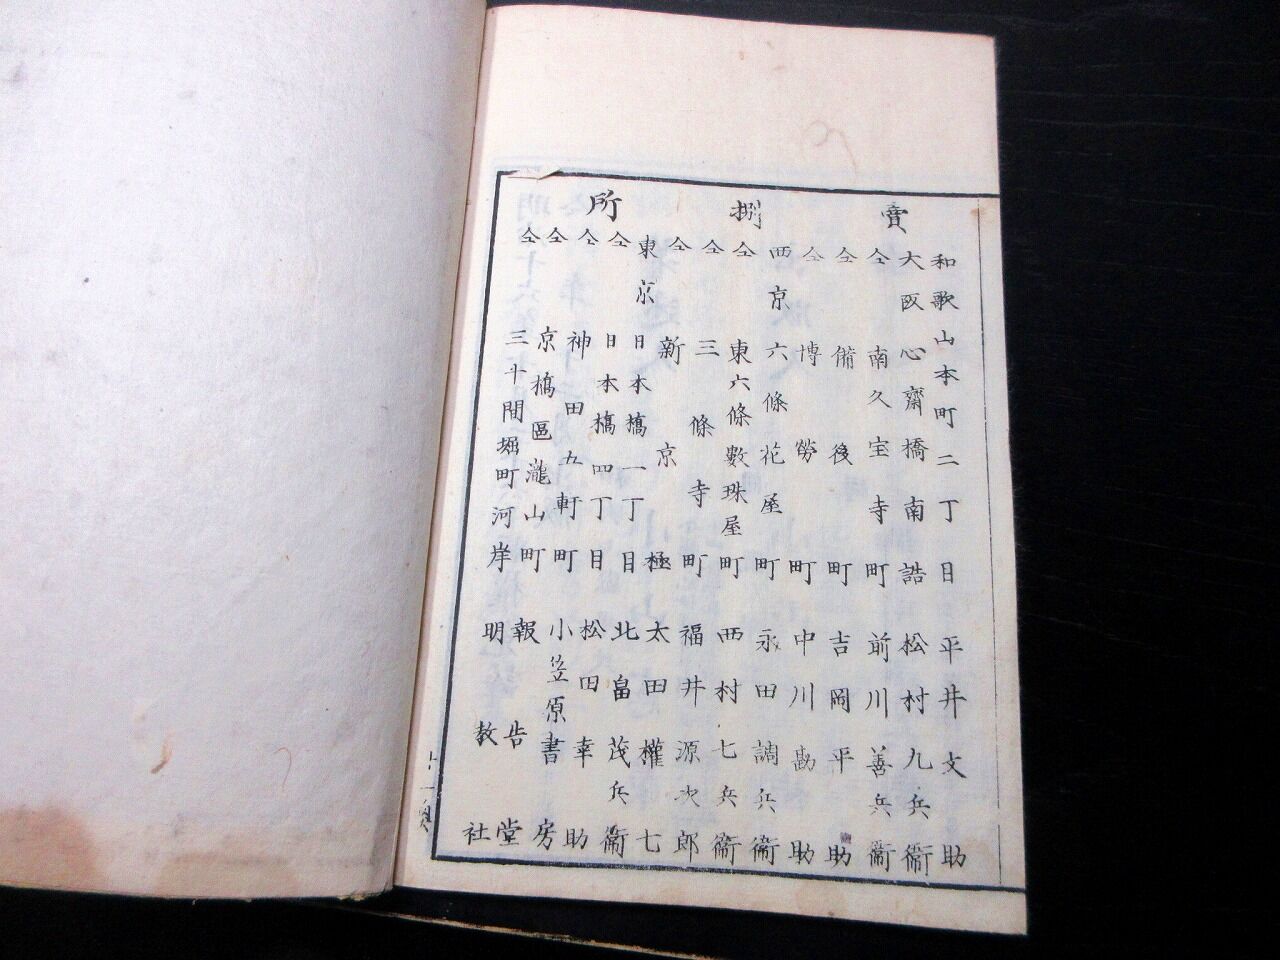 賣捌所
和歌山本町二丁目 平井文助
大阪心齋橋南詰 松村九兵衞
仝 南久宝寺町 前川善兵衞
仝 備後町 吉岡平助
仝 博勞町 中川勘助
西京六條花屋町 永田調兵衞
仝 東六條數珠屋町 西村七兵衞
仝 三條寺町 福井源次郎
仝 新京極 太田權七
東京日本橋一丁目 北畠茂兵衞
仝 日本橋四丁目 松田幸助
仝 神田五軒町 小笠原書房
仝 京橋區瀧山町 報告堂
仝 三十間堀町河岸 明教社